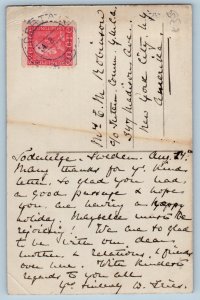 Mr E. M. Robinson
347 Madison Ave.
New York City N.Y.
America
Sweden Aug 29th
Many thanks for yr. kind
letter. So glad you had
a good passage & hope
you are having a happy
holiday.
rejoicing! We are so glad
to be with our dear
mother & relations & friends
over here. With kindest
regards to you all
Yrs. sincerely B.